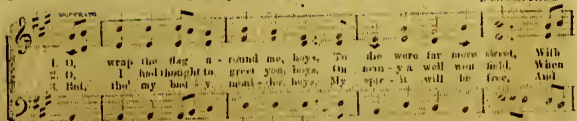 1. O, wrap the flag a - round me, boys, To die were far more sweet, With
2. O, I had thought to greet you, boys, On man - y a well won field, When
3. But, tho' my bod - y moul - der, boys, My spir - it will be free, And